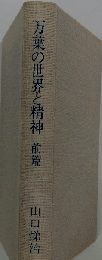 万葉の世界と精神 前篇
山口悌治